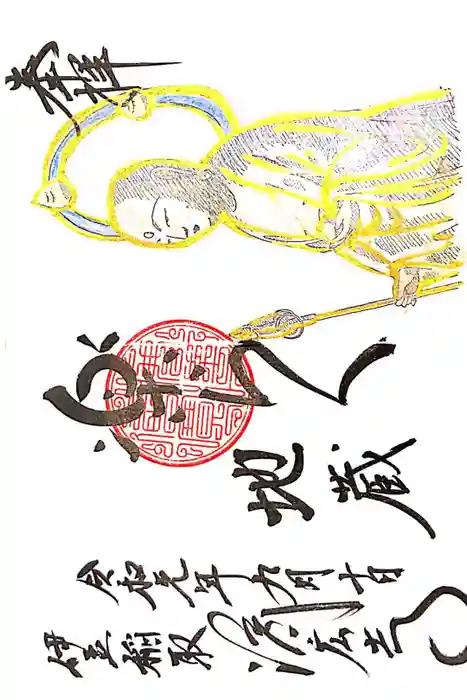 奉拝
地蔵
令和元年九月十日
伊豆稲取 済広寺